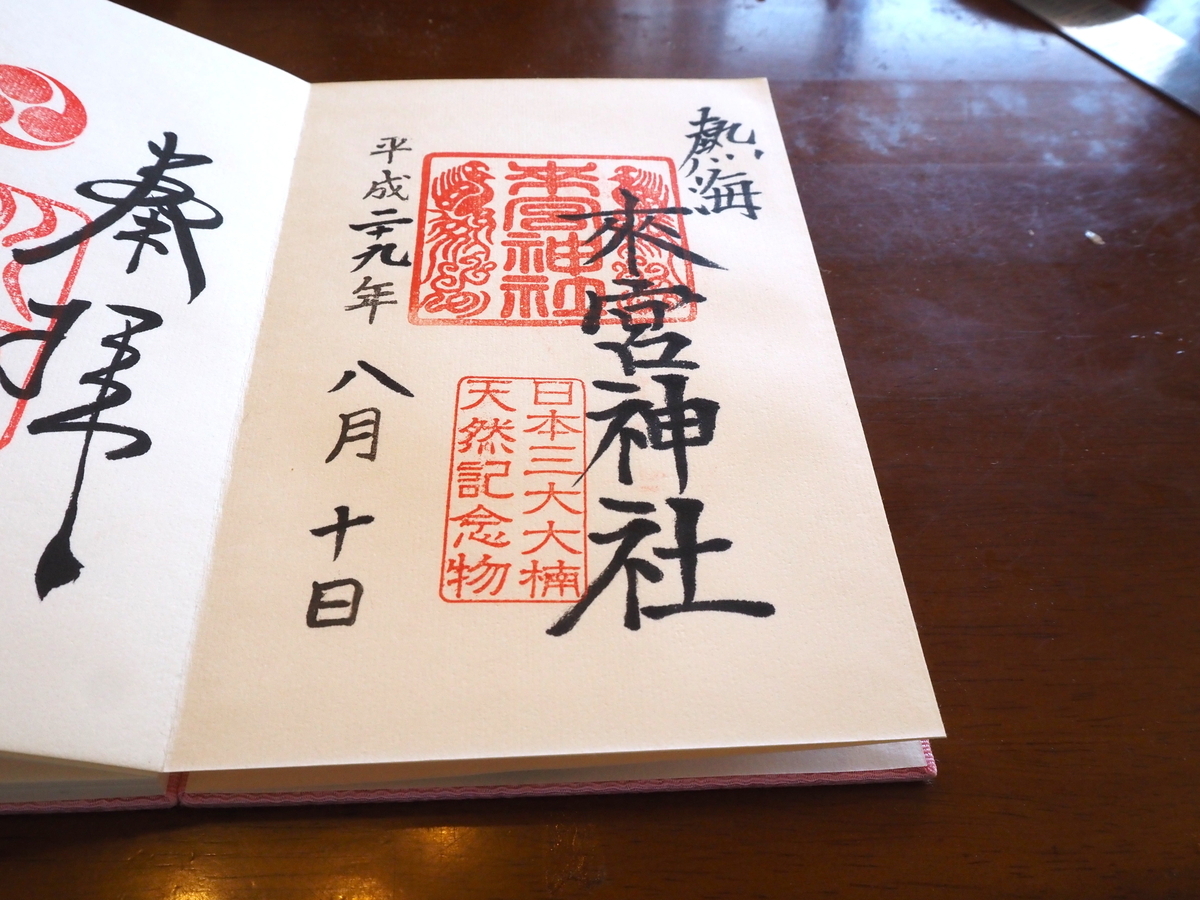 熱海
來宮神社
来宮神社
日本三大大楠
天然記念物
平成二十九年
八月
十日
奉拝